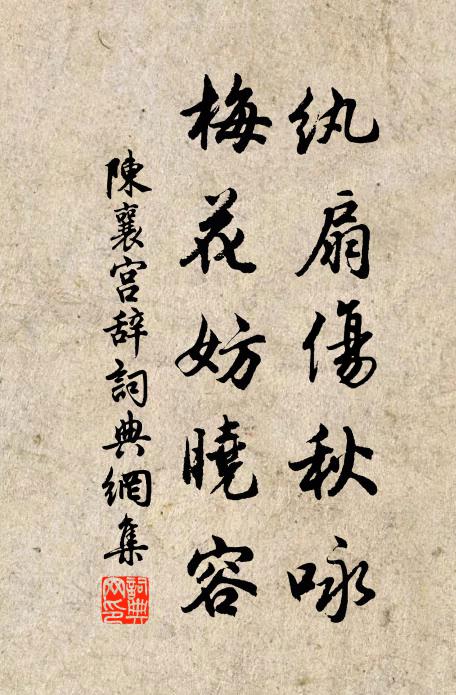 紈扇傷秋咏
梅花妨曉容
陳襄宮辞詞典網集
詞典网印